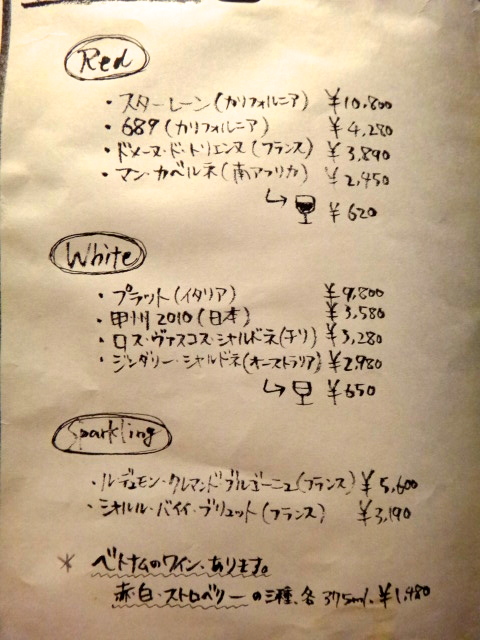 Red
・スターレーン(カリフォルニア) ¥10,800
・689(カリフォルニア) ¥4,280
・ドメーヌ・ド・トリエンヌ(フランス) ¥3,890
・マン・カベルネ(南アフリカ) ¥2,450
↳ ¥620
White
・プラット(イタリア) ¥9,800
・甲州2010(日本) ¥3,580
・ロス・ヴァスコス・シャルドネ(チリ) ¥3,280
・ジンダリー・シャルドネ(オーストラリア) ¥2,980
↳ ¥650
Sparkling
・ルデュモン・クレマンドブルゴーニュ(フランス) ¥5,600
・シャルル・バイイ・ブリュット(フランス) ¥3,190
* ベトナムのワイン、あります。
赤・白・ストロベリーの三種、各375ml. ¥1,480